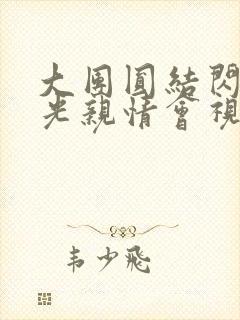 大團圓結閃
光親情會視
韦少飛